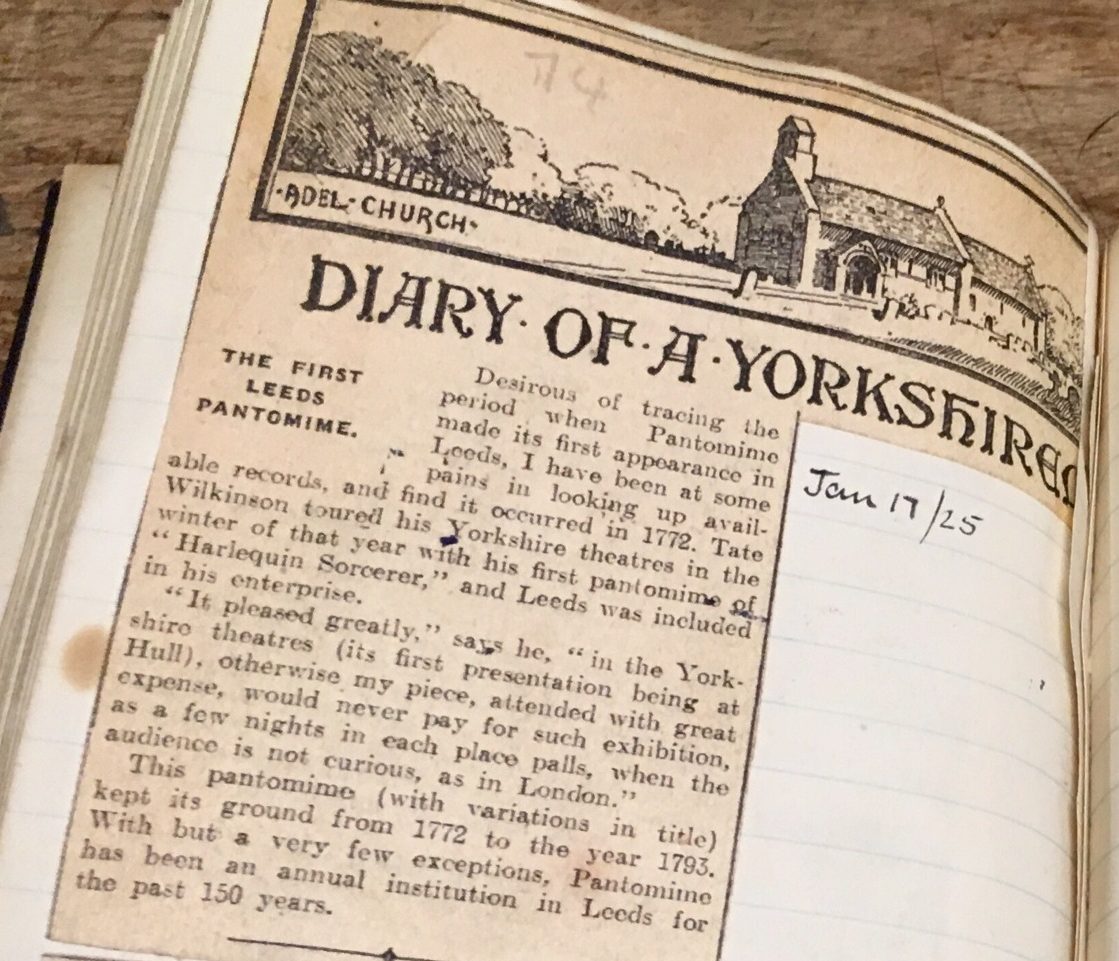 74
·ADEL·CHURCH·
DIARY·OF·A·YORKSHIRE
THE FIRST
LEEDS
PANTOMIME.
Desirous of tracing the
period when Pantomime
made its first appearance in
Leeds, I have been at some
pains in looking up avail-
able records, and find it occurred in 1772. Tate
Wilkinson toured his Yorkshire theatres in the
winter of that year with his first pantomime of
“Harlequin Sorcerer,” and Leeds was included
in his enterprise.
“It pleased greatly,” says he, “in the York-
shire theatres (its first presentation being at
Hull), otherwise my piece, attended with great
expense, would never pay for such exhibition,
as a few nights in each place palls, when the
audience is not curious, as in London.”
This pantomime (with variations in title)
kept its ground from 1772 to the year 1793.
With but a very few exceptions, Pantomime
has been an annual institution in Leeds for
the past 150 years.
Jan 17/25